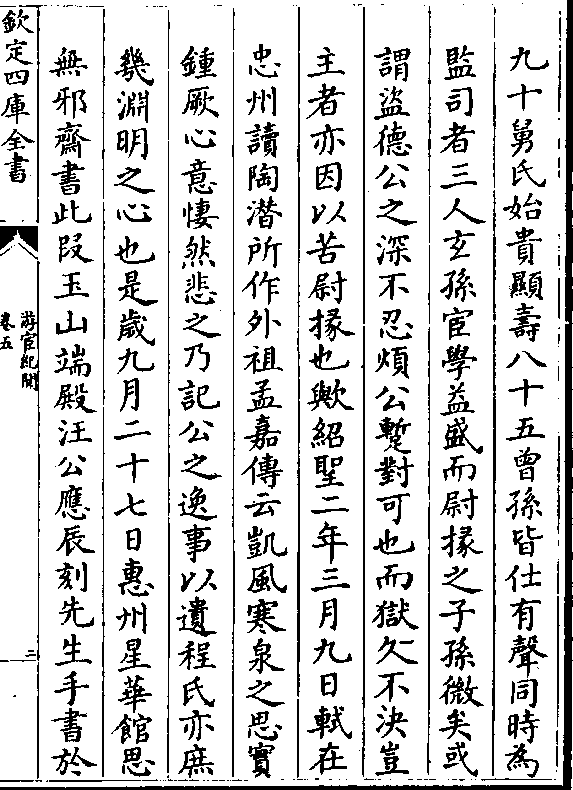 九十舅氏始貴顯壽八十五曾孫皆仕有聲同時為
監司者三人玄孫宦學益盛而尉掾之子孫微矣或
謂盜德公之深不忍煩公蹔對可也而獄久不決豈
主者亦因以苦尉掾也歟紹聖二年三月九日軾在
忠州讀陶潛所作外祖孟嘉傳云凱風寒泉之思實
鍾厥心意悽然悲之乃記公之逸事以遺程氏亦庶
幾淵明之心也是歲九月二十七日惠州星華館思
無邪齋書此段玉山端殿汪公應辰刻先生手書於
欽定四庫全書
游宦紀聞
卷五
三